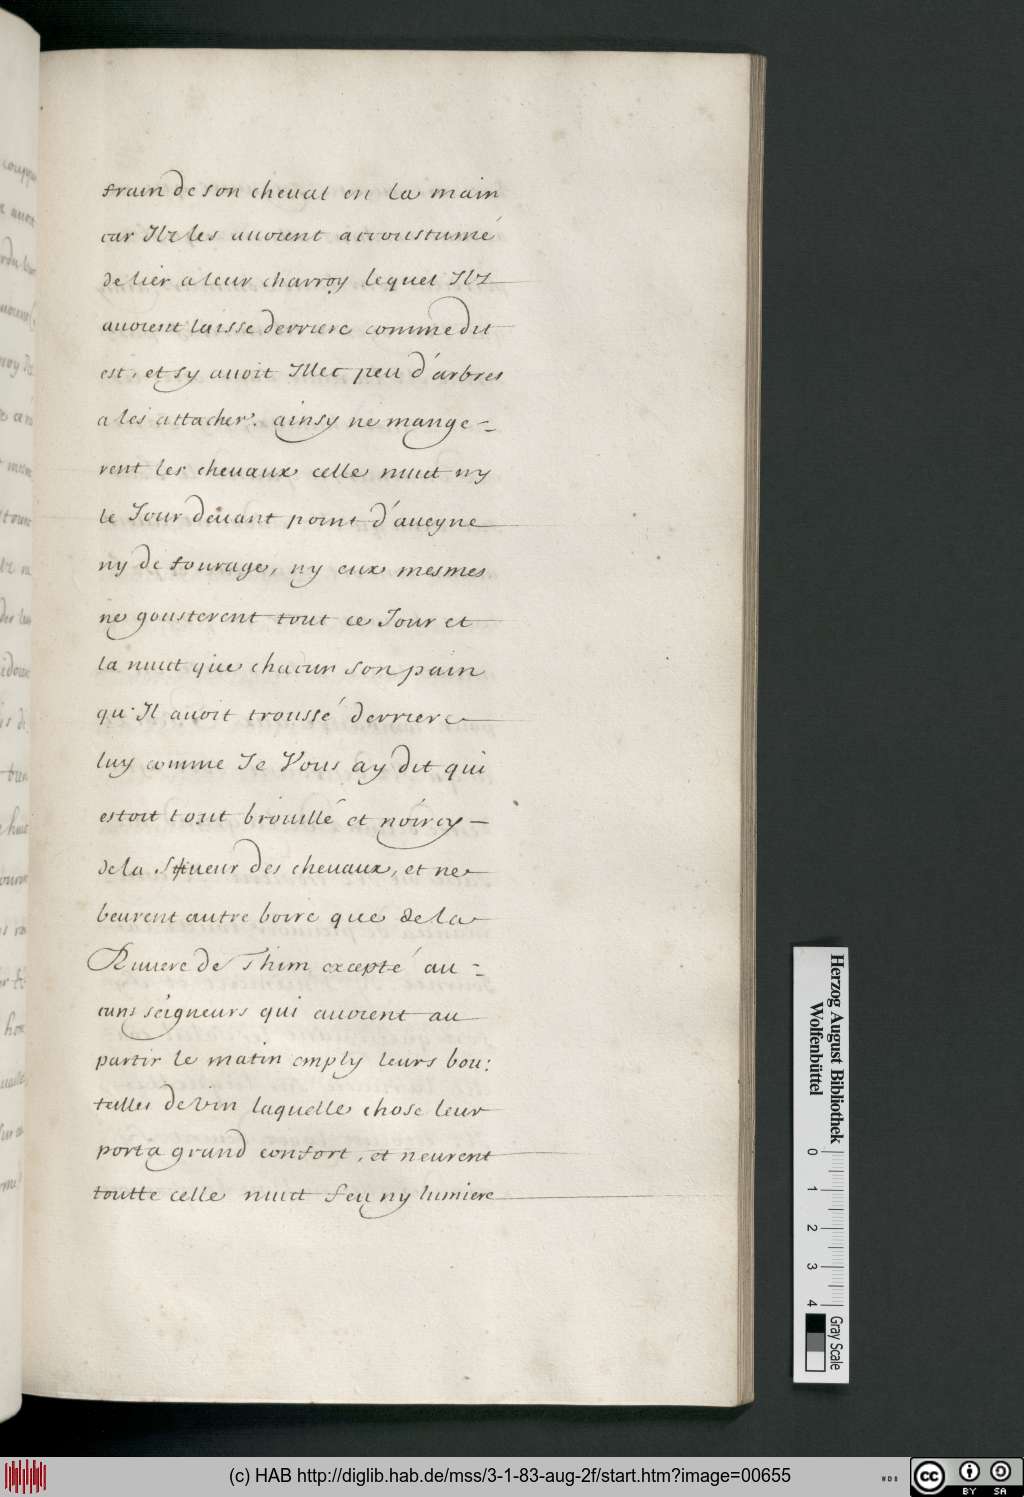 frain de son cheual en la main
car Ilz les auoient accoustumé
de lier a leur charroy lequel Ilz
auoient laisse derriere comme dit
est, et sy auoit Illec peu d'arbres
a les attacher. ainsy ne mange-
rent les cheuaux celle nuict ny
le Jour deuant point d'aueyne
ny de fourage, ny eux mesmes
ne gousterent tout ce Jour et
la nuict que chacun son pain
qu'Il auoit troussé derriere
luy comme Je Vous ay dit qui
estoit tout brouillé et noircy
de la Sueur des cheuaux, et ne
beurent autre boire que de la
Riuiere de Thim excepté au-
cuns seigneurs qui auoient au
partir le matin emply leurs bou:
teilles de vin laquelle chose leur
porta grand confort, et n'eurent
toutte celle nuict feu ny lumiere
Herzog August Bibliothek
Wolfenbüttel
0 1 2 3 4
Gray Scale
(c) HAB http://diglib.hab.de/mss/3-1-83-aug-2f/start.htm?image=00655
cc BY SA